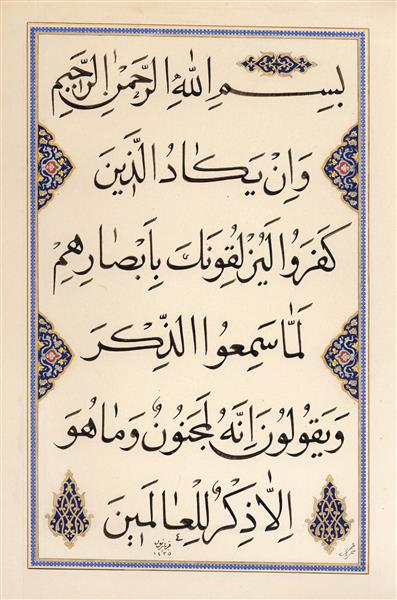 بِسْمِ اللّٰهِ الرَّحْمٰنِ الرَّحِيمِ
وَاِنْ يَكٰادُ الَّذِينَ
كَفَرُوا لَيُزْلِقُونَكَ بِاَبْصٰارِهِمْ
لَمّٰا سَمِعُوا الذِّكْرَ
وَيَقُولُونَ اِنَّهُ لَمَجْنُونٌ وَمٰا هُوَ
اِلّٰا ذِكْرٌ لِلْعٰالَمِينَ